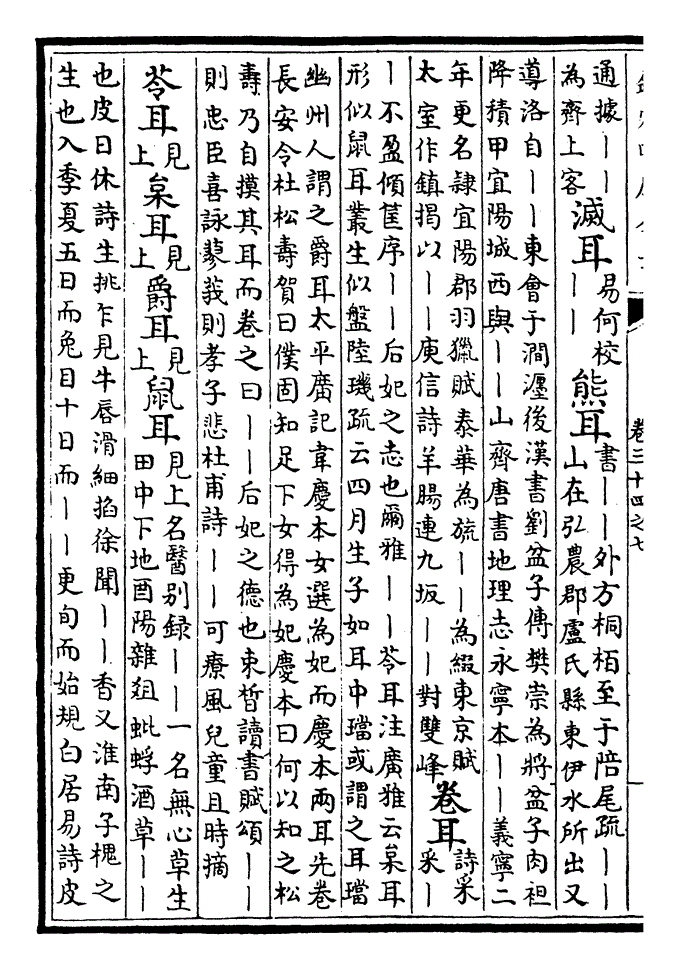 卷三十四之七
通據｜｜為齊上客 滅耳 易何校｜｜ 熊耳 書｜｜外方桐栢至于陪尾疏｜｜山在弘農郡盧氏縣東伊水所出又
導洛自｜｜東會于澗瀍後漢書劉盆子傳樊崇為將盆子肉袒
降積甲宜陽城西與｜｜山齊唐書地理志永寧本｜｜義寧二
年更名隷宜陽郡羽獵賦泰華為旒｜｜為綴東京賦
太室作鎮揭以｜｜庾信詩羊腸連九坂｜｜對雙峰 卷耳 詩采采｜
｜不盈傾筐序｜｜后妃之志也爾雅｜｜苓耳注廣雅云枲耳
形似鼠耳叢生似盤陸璣疏云四月生子如耳中璫或謂之耳璫
幽州人謂之爵耳太平廣記韋慶本女選為妃而慶本兩耳先卷
長安令杜松壽賀曰僕固知足下女得為妃慶本曰何以知之松
壽乃自摸其耳而卷之曰｜｜后妃之德也束皙讀書賦頌｜｜
則忠臣喜詠蓼莪則孝子悲杜甫詩｜｜可療風兒童且時摘
苓耳 見上 枲耳 見上 爵耳 見上 鼠耳 見上名醫别録｜｜一名無心草生田中下地酉陽雜俎蚍蜉酒草｜｜
也皮日休詩生挑乍見牛唇滑細掐徐聞｜｜香又淮南子槐之
生也入季夏五日而兔目十日而｜｜更旬而始規白居易詩皮